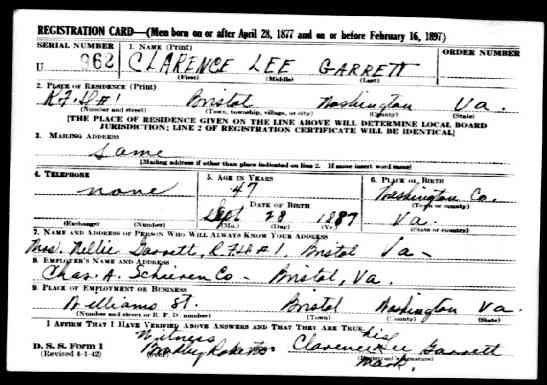 REGISTRATION CARD—(Men born on or after April 28, 1877 and on or before February 16, 1897)
SERIAL NUMBER 1. NAME (Print) ORDER NUMBER
U 962 CLARENCE LEE GARRETT
(First) (Middle) (Last)
2. PLACE OF RESIDENCE (Print)
R.F.D. #1 Bristol Washington Va.
(Number and street) (Town, township, village, or city) (County) (State)
[THE PLACE OF RESIDENCE GIVEN ON THE LINE ABOVE WILL DETERMINE LOCAL BOARD
JURISDICTION; LINE 2 OF REGISTRATION CERTIFICATE WILL BE IDENTICAL]
3. MAILING ADDRESS
Same
[Mailing address if other than place indicated on line 2. If same insert word same]
4. TELEPHONE 5. AGE IN YEARS 6. PLACE OF BIRTH
none 47 Washington Co.
DATE OF BIRTH (Town or county)
Sept 28 1887 Va.
(Exchange) (Number) (Mo.) (Day) (Yr.) (State or country)
7. NAME AND ADDRESS OF PERSON WHO WILL ALWAYS KNOW YOUR ADDRESS
Mrs. Nellie Garrett, R.F.D. #1. Bristol Va-
8. EMPLOYER'S NAME AND ADDRESS
Chas. A. Schieren Co - Bristol, Va.
9. PLACE OF EMPLOYMENT OR BUSINESS
Williams St. Bristol Washington Va.
(Number and street or R. F. D. number) (Town) (County) (State)
I AFFIRM THAT I HAVE VERIFIED ABOVE ANSWERS AND THAT THEY ARE TRUE.
Witness his
D. S. S. Form 1 Clarence Lee Garrett
(Revised 4-1-42) (Registrant's signature)
Mark.